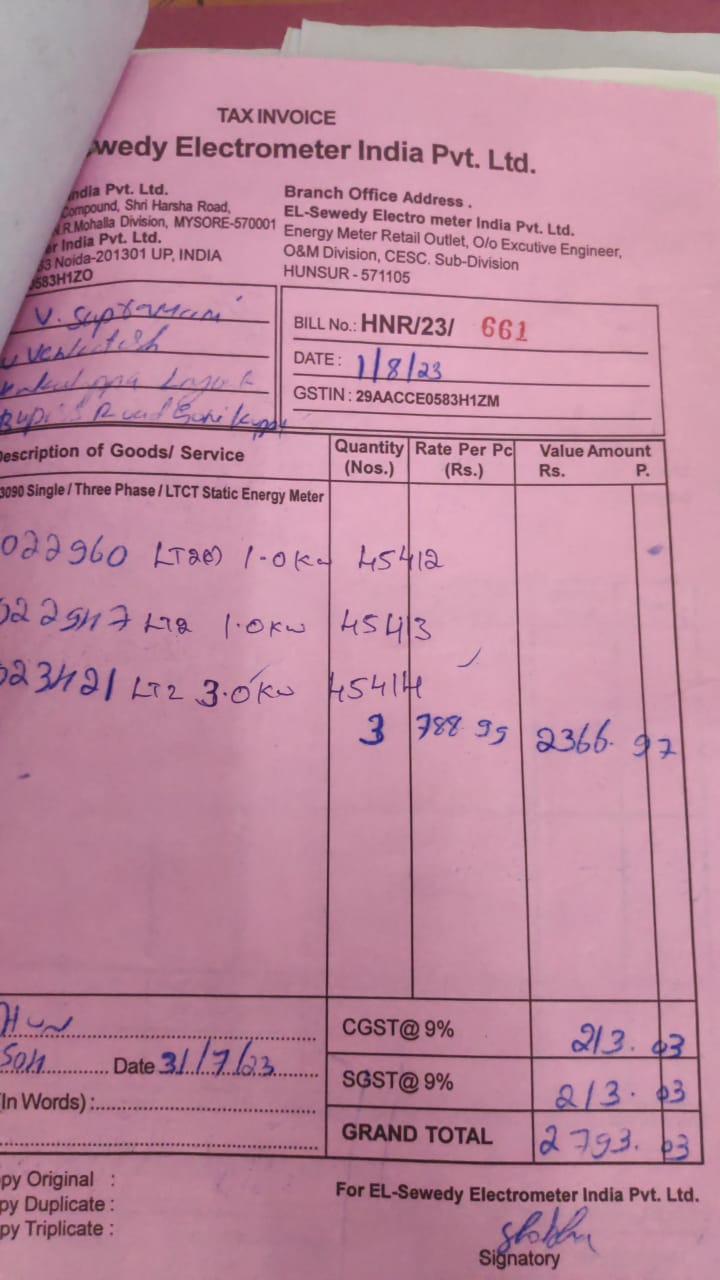 TAX INVOICE
wedy Electrometer India Pvt. Ltd.
ndia Pvt. Ltd.
Compound, Shri Harsha Road,
N.R.Mohalla Division, MYSORE-570001
er India Pvt. Ltd.
Noida-201301 UP, INDIA
0583H1ZO
Branch Office Address .
EL-Sewedy Electro meter India Pvt. Ltd.
Energy Meter Retail Outlet, O/o Excutive Engineer,
O&M Division, CESC. Sub-Division
HUNSUR - 571105
V.
Venkatesh
Road
BILL No.: HNR/23/ 661
DATE : 1/8/23
GSTIN : 29AACCE0583H1ZM
escription of Goods/ Service Quantity (Nos.) Rate Per Pc (Rs.) Value Amount Rs. P.
3090 Single / Three Phase / LTCT Static Energy Meter
022960 1.0Kw 45412
LT2 1.0Kw 45413
023421 LT2 3.0Kw 45414
3 788.99 2366.97
CGST@ 9% 213.03
Date 31/7/23
SGST@ 9% 213.03
(In Words) :
GRAND TOTAL 2793.03
py Original :
py Duplicate :
py Triplicate :
For EL-Sewedy Electrometer India Pvt. Ltd.
Signatory